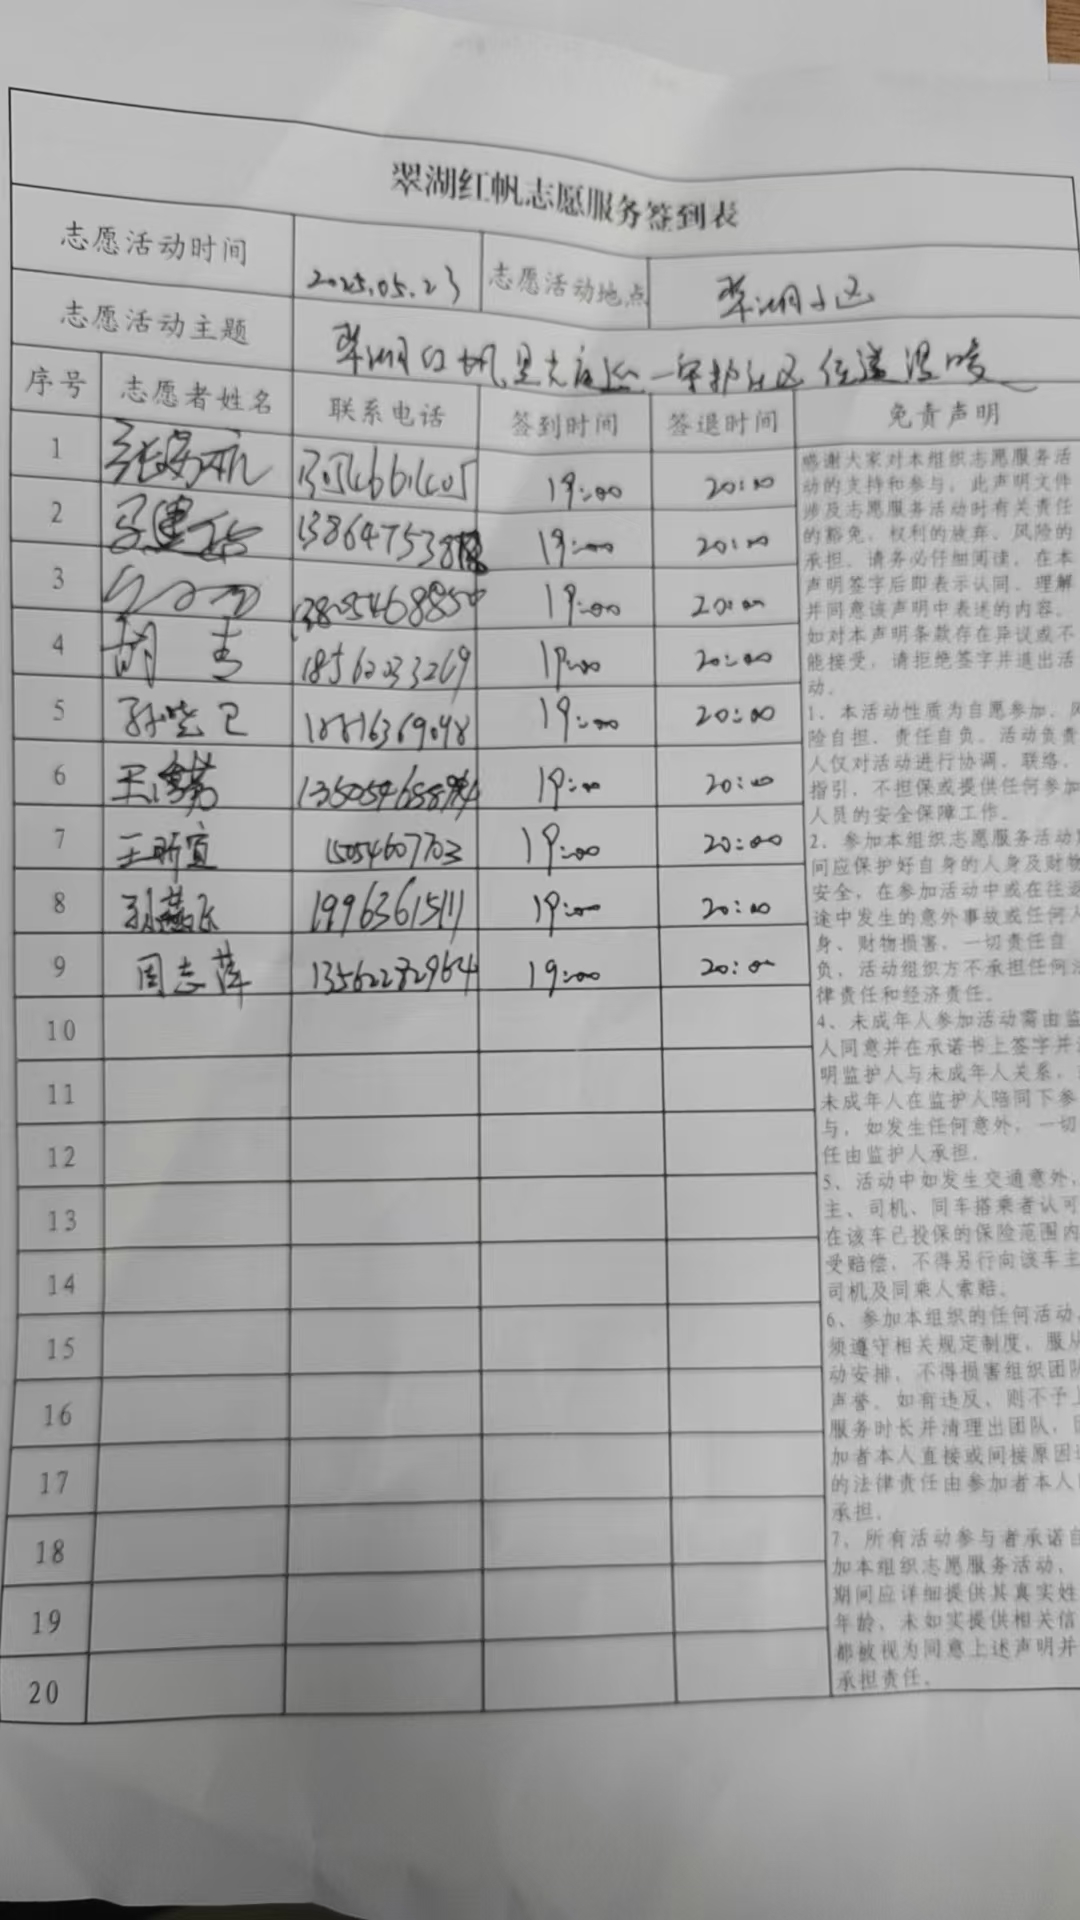 翠湖红帆志愿服务签到表
志愿活动时间 2025.05.23 志愿活动地点 翠湖小区
志愿活动主题 翠湖红帆 守护社区 传递温暖
序号 志愿者姓名 联系电话 签到时间 签退时间 免责声明
1 19:00 20:00
2 19:00 20:00
3 13805468850 19:00 20:00
4 胡 18562033269 19:00 20:00
5 19:00 20:00
6 19:00 20:00
7 王昕宜 15054607703 19:00 20:00
8 19963615111 19:00 20:00
9 周志萍 13562282964 19:00 20:00
10
11
12
13
14
15
16
17
18
19
20
感谢大家对本组织志愿服务活
动的支持和参与，此声明文件
涉及志愿服务活动时有关责任
的豁免、权利的放弃、风险的
承担。请务必仔细阅读，在本
声明签字后即表示认同、理解
并同意该声明中表述的内容。
如对本声明条款存在异议或不
能接受，请拒绝签字并退出活
动。
1、本活动性质为自愿参加、风
险自担、责任自负。活动负责
人仅对活动进行协调、联络、
指引，不担保或提供任何参加
人员的安全保障工作。
2、参加本组织志愿服务活动
间应保护好自身的人身及财物
安全，在参加活动中或在往返
途中发生的意外事故或任何人
身、财物损害，一切责任自
负，活动组织方不承担任何法
律责任和经济责任。
4、未成年人参加活动需由监
人同意并在承诺书上签字并
明监护人与未成年人关系，
未成年人在监护人陪同下参
与，如发生任何意外，一切
任由监护人承担。
5、活动中如发生交通意外，
主、司机、同车搭乘者认可
在该车已投保的保险范围内
受赔偿，不得另行向该车主
司机及同乘人索赔。
6、参加本组织的任何活动，
须遵守相关规定制度，服从
动安排，不得损害组织团队
声誉。如有违反，则不予上
服务时长并清理出团队，因
加者本人直接或间接原因
的法律责任由参加者本人
承担。
7、所有活动参与者承诺自
加本组织志愿服务活动，
期间应详细提供其真实姓
年龄，未如实提供相关信
都被视为同意上述声明并
承担责任。